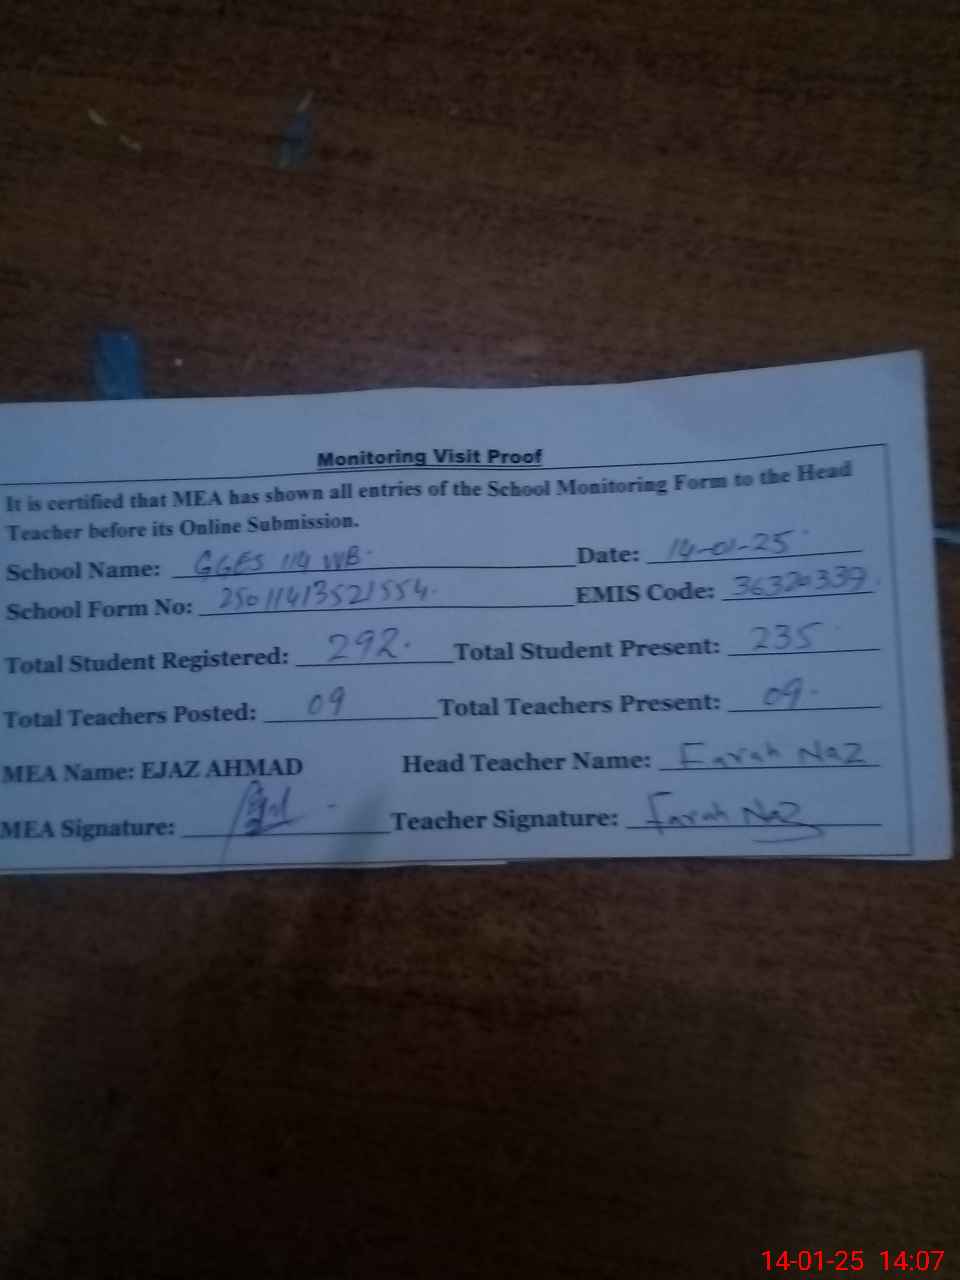 Monitoring Visit Proof
It is certified that MEA has shown all entries of the School Monitoring Form to the Head
Teacher before its Online Submission.
School Name: GGES 119 WB Date: 14-01-25
School Form No: 25011413521554 EMIS Code: 36320339
Total Student Registered: 292 Total Student Present: 235
Total Teachers Posted: 09 Total Teachers Present: 09
MEA Name: EJAZ AHMAD Head Teacher Name: Farah Naz
MEA Signature: Teacher Signature: Farah Naz
14-01-25 14:07